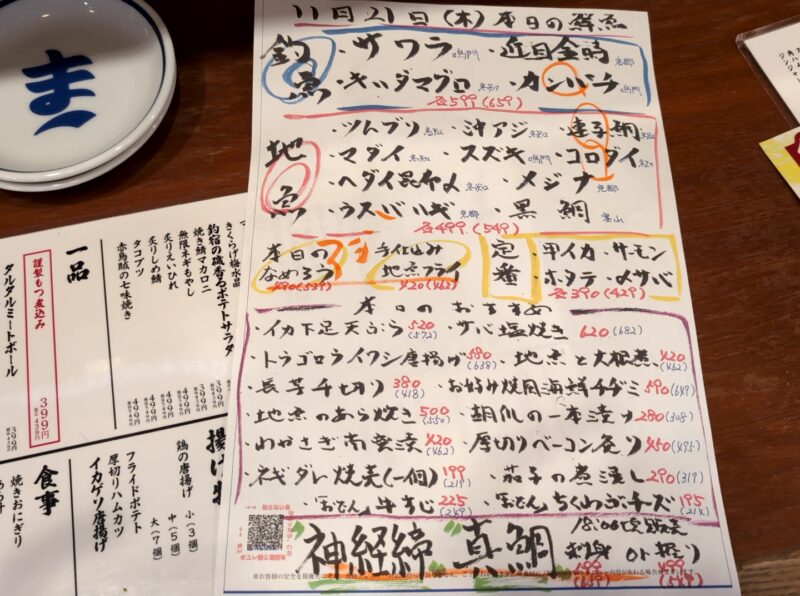 11月21日(木)本日の鮮魚
釣魚
・サワラ 鳴門 ・近目金時 京都
・キハダマグロ ・カンパチ 鳴門
各599(659)
地魚
・ツムブリ 高知 ・沖アジ ・連子鯛
・マダイ 高知 ・スズキ 鳴門 ・コロダイ
・ヘダイ昆布〆 ・メジナ 京都
・ウスバハギ 京都 ・黒鯛 富山
各499(549)
本日のなめろう アジ
490(539)
手仕込み地魚フライ
420(462)
定番
・甲イカ ・サーモン
・ホタテ ・〆サバ
各390(429)
本日のおすすめ
・イカ下足天ぷら 520(572) ・サバ塩焼き 620(682)
・トラゴロライワシ唐揚げ 580(638) ・地魚と大根煮 420(462)
・長芋千切り 380(418) ・お好み焼風海鮮チヂミ 590(649)
・地魚のあら炊き 500(550) ・胡瓜の一本漬け 280(308)
・わかさぎ南蛮漬 420(462) ・厚切りベーコン炙り 450(495)
・ネギダレ焼売(一個) 199(219) ・茄子の煮浸し 290(319)
・「おでん」牛すじ 225(249) ・「おでん」ちくわぶチーズ 195(214)
神経締 真鯛
18:00〜販売
刺身 or 握り
499(549) 499(549)
ま
きくらげ梅水晶
釣宿の磯香るポテトサラダ
焼き鯖マカロニ
無限ネギもやし
炙りえいひれ
炙りしめ鯖
タコブツ
赤鳥賊の七味焼き
499円
499円
499円
499円
一品
謹製もつ煮込み
399円
税込439円
タルタルミートボール
399円
揚げ物
鶏の唐揚げ
小(3個)
中(5個)
大(7個)
フライドポテト
厚切りハムカツ
イカゲソ唐揚げ
食事
焼きおにぎり